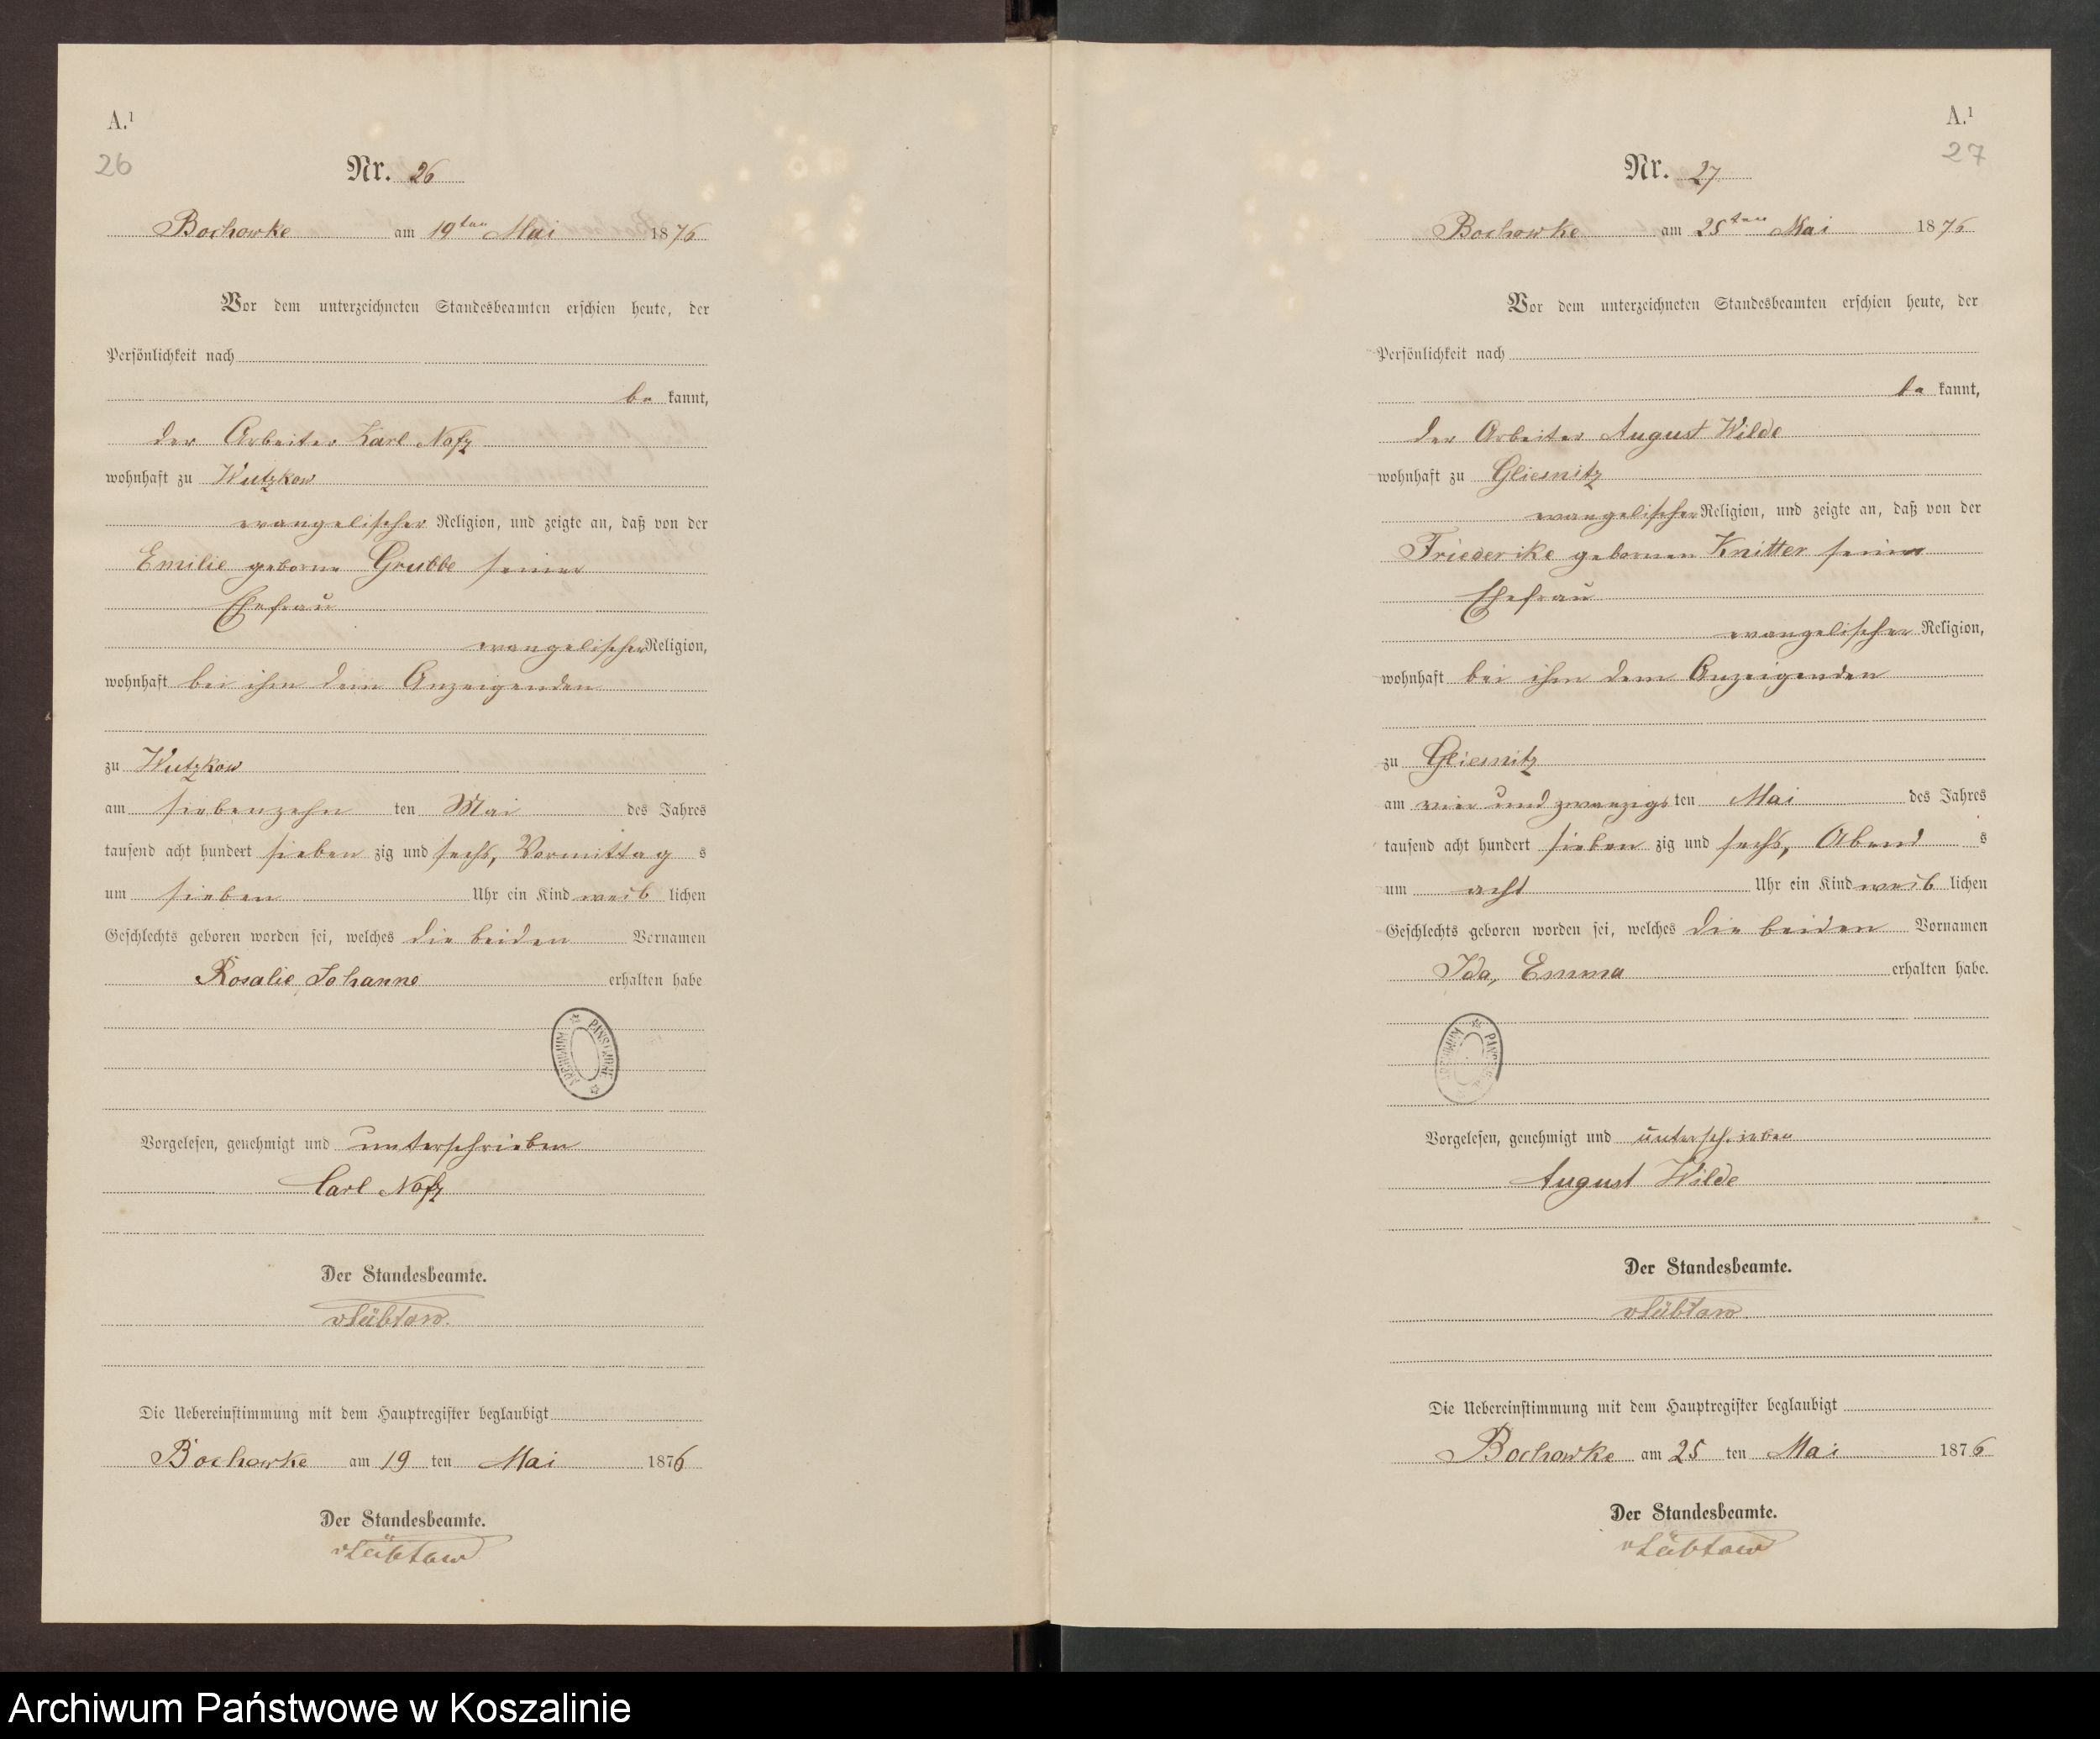 A.¹
26
Nr. 26
Bochowke am 19ten Mai 1876
Vor dem unterzeichneten Standesbeamten erschien heute, der
Persönlichkeit nach
be kannt,
der Arbeiter Karl Nofz
wohnhaft zu Wutzkow
evangelischer Religion, und zeigte an, daß von der
Emilie geborne Grubbe seiner
Ehefrau
evangelischer Religion,
wohnhaft bei ihm dem Anzeigenden
zu Wutzkow
am siebenzehn ten Mai des Jahres
tausend acht hundert sieben zig und sechs, Vormittag s
um sieben Uhr ein Kind weib lichen
Geschlechts geboren worden sei, welches die beiden Vornamen
Rosalie, Johanne erhalten habe
ARCHIWUM PAŃSTWOWE
Vorgelesen, genehmigt und unterschrieben
Carl Nofz
Der Standesbeamte.
vLübtow.
Die Uebereinstimmung mit dem Hauptregister beglaubigt
Bochowke am 19 ten Mai 1876
Der Standesbeamte.
vLübtow
A.¹
27
Nr. 27
Bochowke am 25ten Mai 1876
Vor dem unterzeichneten Standesbeamten erschien heute, der
Persönlichkeit nach
be kannt,
der Arbeiter August Wilde
wohnhaft zu Gliesnitz
evangelischer Religion, und zeigte an, daß von der
Friederike gebornen Knitter seiner
Ehefrau
evangelischer Religion,
wohnhaft bei ihm dem Anzeigenden
zu Gliesnitz
am vier und zwanzigs ten Mai des Jahres
tausend acht hundert sieben zig und sechs, Abend s
um acht Uhr ein Kind weib lichen
Geschlechts geboren worden sei, welches die beiden Vornamen
Ida, Emma erhalten habe.
Vorgelesen, genehmigt und unterschrieben
August Wilde
Der Standesbeamte.
vLübtow.
Die Uebereinstimmung mit dem Hauptregister beglaubigt
Bochowke am 25 ten Mai 1876
Der Standesbeamte.
vLübtow
Archiwum Państwowe w Koszalinie